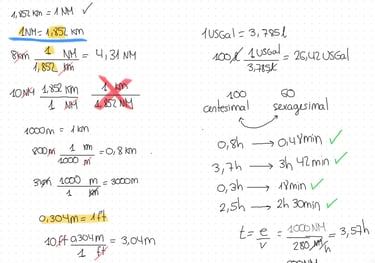 1,852 km = 1 NM ✓
1NM = 1,852 km
8km 1 NM / 1,852 km = 4,31 NM
10NM 1,852 km / 1 NM 1 km / 1,852 NM
1000m = 1 km
800m 1 km / 1000 m = 0,8km
3km 1000 m / 1 km = 3000m
0,304m = 1ft
10ft 0,304m / 1 ft = 3,04m
1USGal = 3,785l
100l 1USGal / 3,785l = 26,42USGal
100 60
centesimal sexagesimal
0,8h → 0,48min ✓
3,7h → 3h 42min ✓
0,3h → 18min ✓
2,5h → 2h 30min ✓
t = e / v = 1000NM / 280NM/h = 3,57h